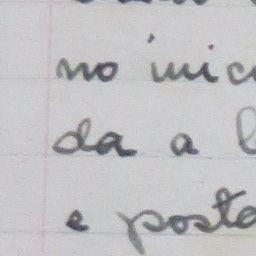 no inic
da a l
e posto